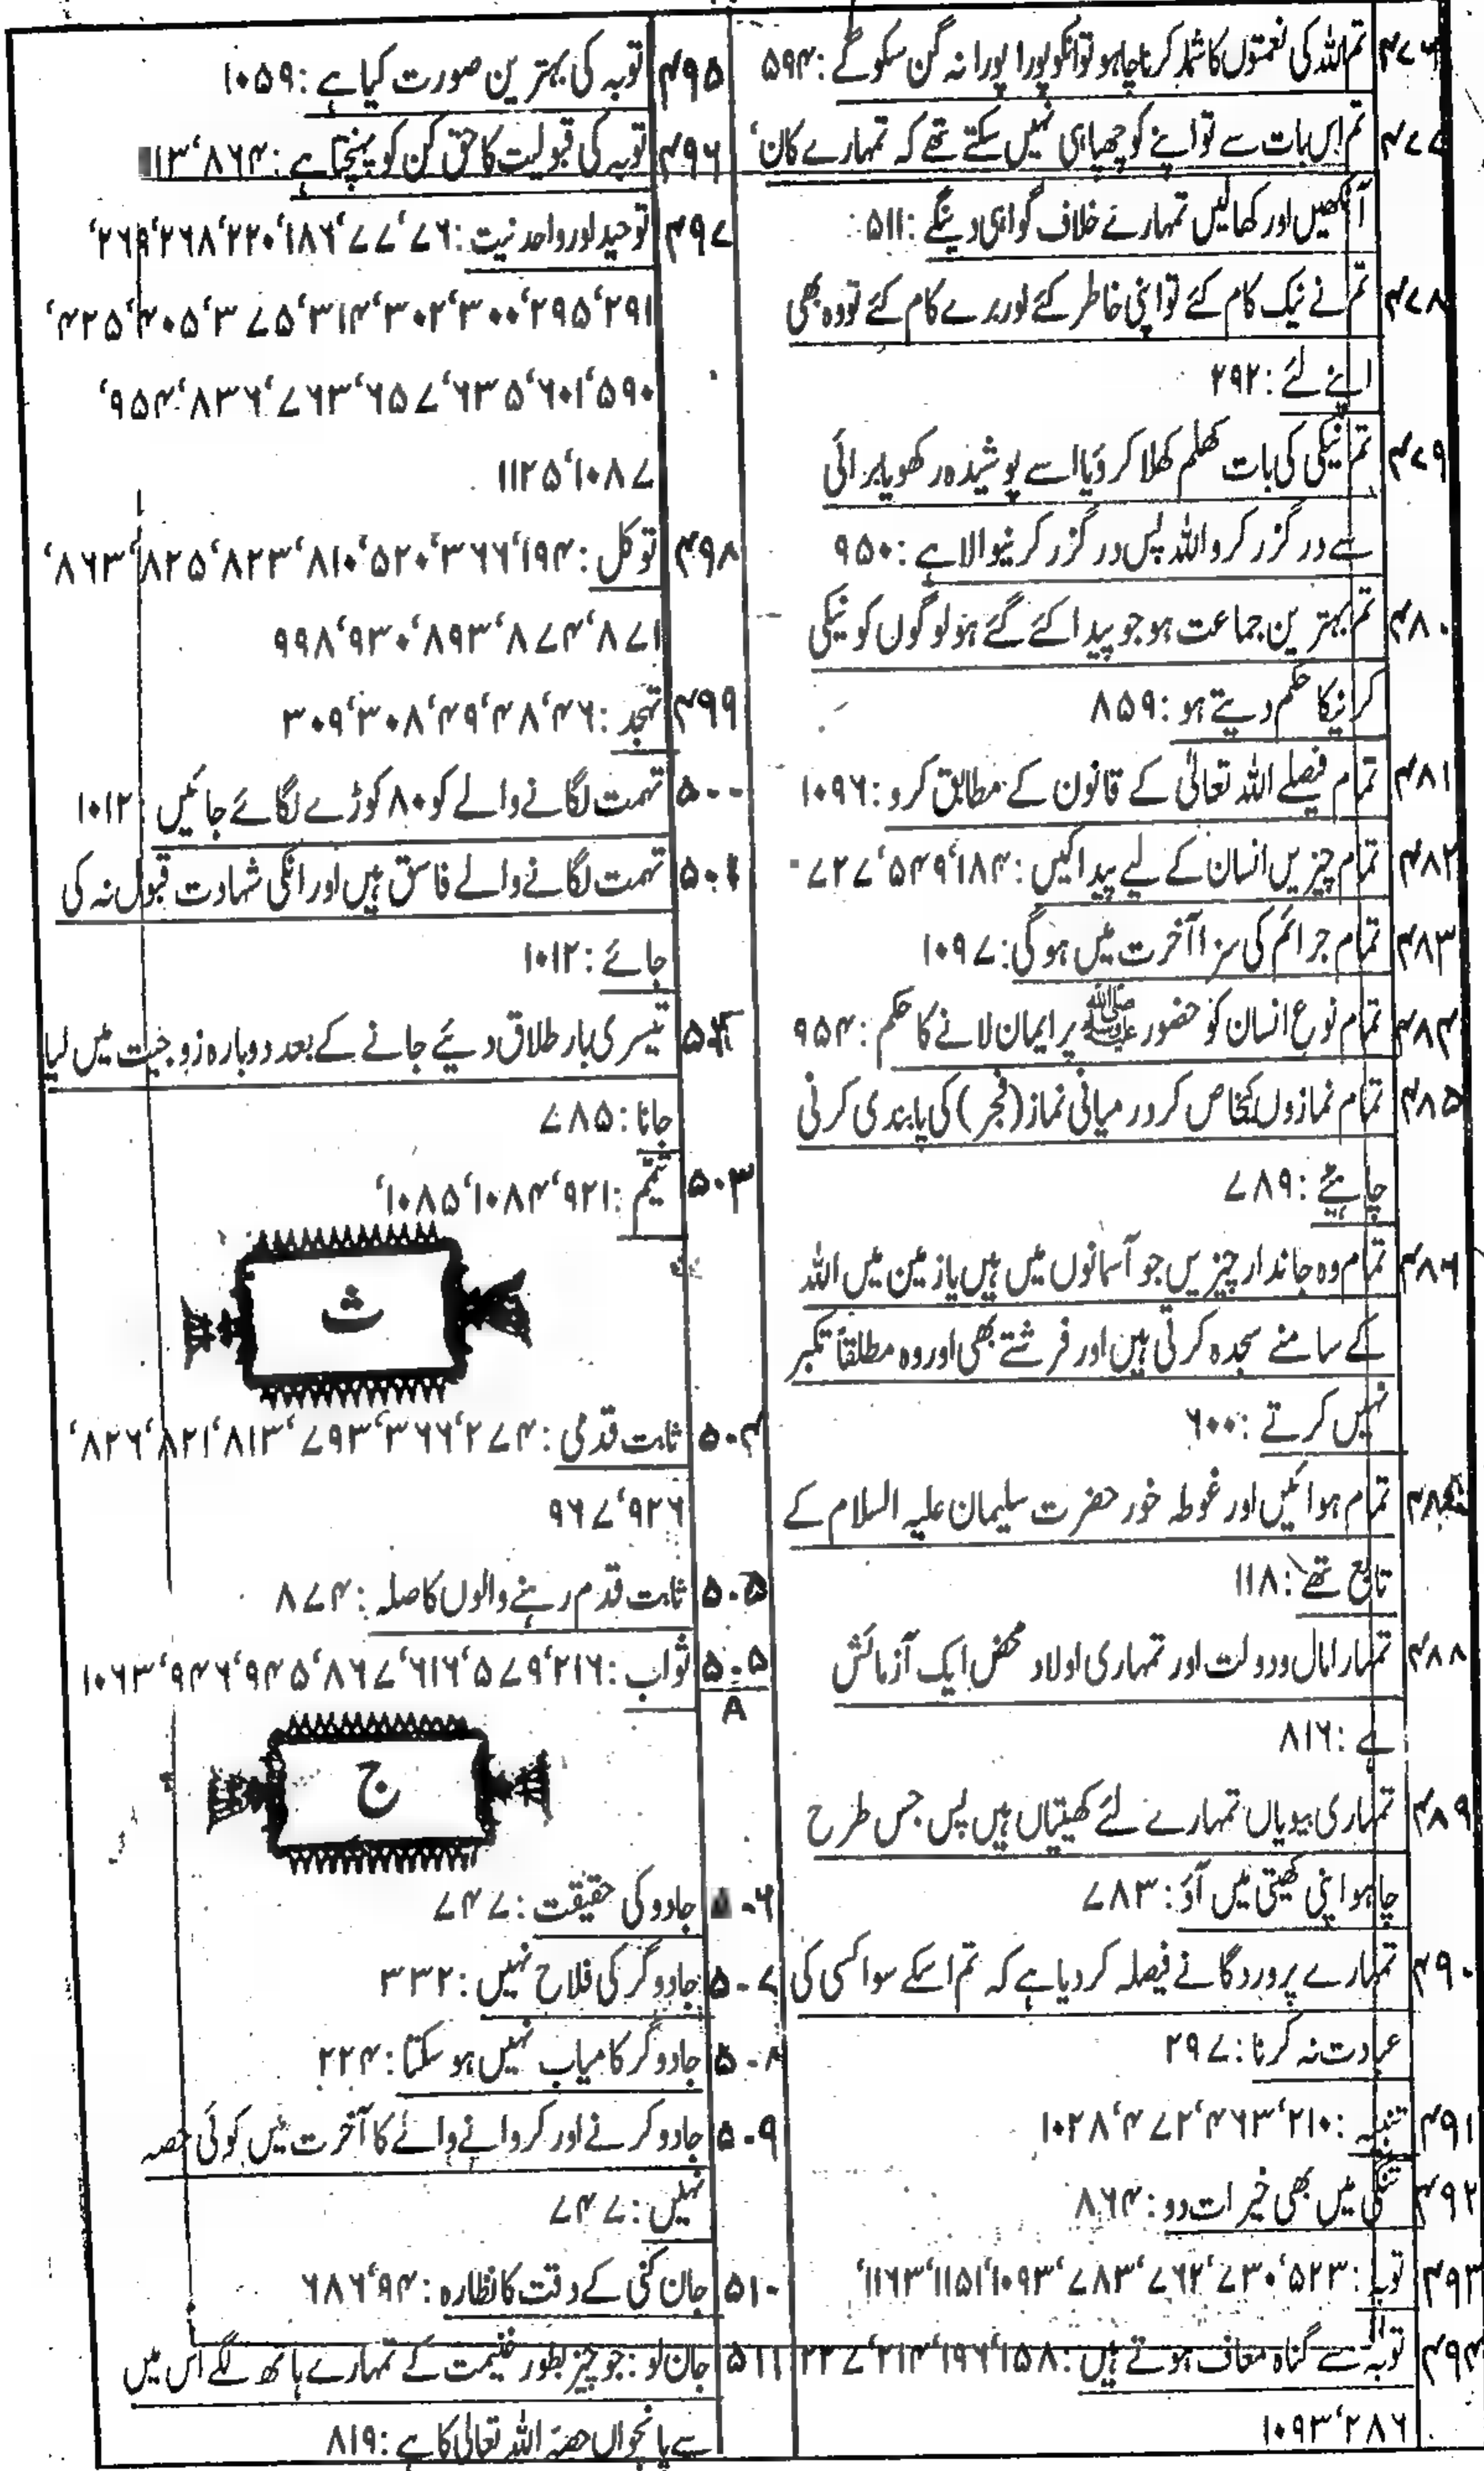 ۴۷۶ تم اللہ کی نعمتوں کا شمار کرنا چاہو تو انکو پورا پورا نہ گن سکو گے : ۵۹۴
۴۷۷ تم اس بات سے تو اپنے کو چھپا ہی نہیں سکتے تھے کہ تمہارے کان'
آنکھیں اور کھالیں تمہارے خلاف گواہی دینگے : ۵۱۱
۴۷۸ تم نے نیک کام کئے تو اپنی خاطر کئے اور برے کام کئے تو وہ بھی
اپنے لئے : ۲۹۲
۴۷۹ تم نیکی کی بات کھلم کھلا کرو یا اسے پوشیدہ رکھو یا برائی
سے درگزر کرو اللہ پس درگزر کرنیوالا ہے : ۹۵۰
۴۸۰ تم بہترین جماعت ہو جو پیدا کئے گئے ہو لوگوں کو نیکی
کرنیکا حکم دیتے ہو : ۸۵۹
۴۸۱ تمام فیصلے اللہ تعالیٰ کے قانون کے مطابق کرو : ۱۰۹۶
۴۸۲ تمام چیزیں انسان کے لیے پیدا کیں : ۱۸۴'۵۴۹'۷۲۷
۴۸۳ تمام جرائم کی سزا آخرت میں ہو گی : ۱۰۹۷
۴۸۴ تمام نوع انسان کو حضور ﷺ پر ایمان لانے کا حکم : ۹۵۴
۴۸۵ تمام نمازوں بخاص کر درمیانی نماز (فجر) کی پابندی کرنی
چاہیئے : ۷۸۹
۴۸۶ تمام وہ جاندار چیزیں جو آسمانوں میں ہیں یا زمین میں اللہ
کے سامنے سجدہ کرتی ہیں اور فرشتے بھی اور وہ مطلقاً تکبر
نہیں کرتے : ۶۰۰
۴۸۷ تمام ہوائیں اور غوطہ خور حضرت سلیمان علیہ السلام کے
تابع تھے : ۱۱۸
۴۸۸ تمہارا مال و دولت اور تمہاری اولاد محض ایک آزمائش
ہے : ۸۱۶
۴۸۹ تمہاری بیویاں تمہارے لئے کھیتاں ہیں پس جس طرح
چاہو اپنی کھیتی میں آؤ : ۷۸۳
۴۹۰ تمہارے پروردگانے فیصلہ کر دیا ہے کہ تم اسکے سوا کسی کی
عبادت نہ کرنا : ۲۹۷
۴۹۱ تنبیہ : ۲۱۰'۴۶۳'۴۷۲'۱۰۲۸
۴۹۲ تنگی میں بھی خیرات دو : ۸۶۴
۴۹۳ توبہ : ۵۲۳'۷۳۰'۷۶۲'۷۸۳'۱۰۹۳'۱۱۵۱'۱۱۶۳'
۴۹۴ توبہ سے گناہ معاف ہوتے ہیں : ۱۵۸'۱۹۶'۲۱۴'۲۳۷
۲۸۶'۱۰۹۳
۴۹۵ توبہ کی بہترین صورت کیا ہے : ۱۰۵۹
۴۹۶ توبہ کی قبولیت کا حق کن کو پہنچتا ہے : ۸۶۴'۱۱۳
۴۹۷ توحید اور واحد نیت : ۷۶'۷۷'۱۸۶'۲۲۰'۲۶۸'۲۶۹'
۲۹۱'۲۹۵'۳۰۰'۳۰۲'۳۱۴'۳۷۵'۴۰۵'۴۲۵'
۵۹۰'۶۰۱'۶۳۵'۶۵۷'۷۶۳'۸۳۶'۹۵۴'
۱۰۸۷'۱۱۲۵
۴۹۸ توکل : ۱۹۴'۳۶۶'۵۲۰'۸۱۰'۸۲۳'۸۲۵'۸۶۳'
۸۷۱'۸۷۴'۸۹۳'۹۳۰'۹۹۸
۴۹۹ تہجد : ۴۶'۴۸'۴۹'۳۰۸'۳۰۹
۵۰۰ تہمت لگانے والے کو ۸۰ کوڑے لگائے جائیں : ۱۰۱۲
۵۰۱ تہمت لگانے والے فاسق ہیں اور انکی شہادت قبول نہ کی
جائے : ۱۰۱۲
۵۰۲ تیسری بار طلاق دیئے جانے کے بعد دوبارہ زوجیت میں لیا
جانا : ۷۸۵
۵۰۳ تیمم : ۹۲۱'۱۰۸۴'۱۰۸۵'
ث
۵۰۴ ثابت قدمی : ۲۷۴'۳۶۶'۷۹۳'۸۱۳'۸۲۱'۸۲۶'
۹۲۶'۹۶۷
۵۰۵ ثابت قدم رہنے والوں کا صلہ : ۸۷۴
۵۰۵ A ثواب : ۲۱۶'۵۷۹'۶۱۶'۸۶۷'۹۴۵'۹۴۶'۱۰۶۳
ج
۵۰۶ جادو کی حقیقت : ۷۴۷
۵۰۷ جادوگر کی فلاح نہیں : ۳۳۲
۵۰۸ جادوگر کامیاب نہیں ہو سکتا : ۲۲۴
۵۰۹ جادو کرنے اور کروانے والے کا آخرت میں کوئی حصہ
نہیں : ۷۴۷
۵۱۰ جان کنی کے وقت کا نظارہ : ۹۴'۶۸۶
۵۱۱ جان لو : جو چیز بطور غنیمت کے تمہارے ہاتھ لگے اس میں
سے پانچواں حصہ اللہ تعالیٰ کا ہے : ۸۱۹